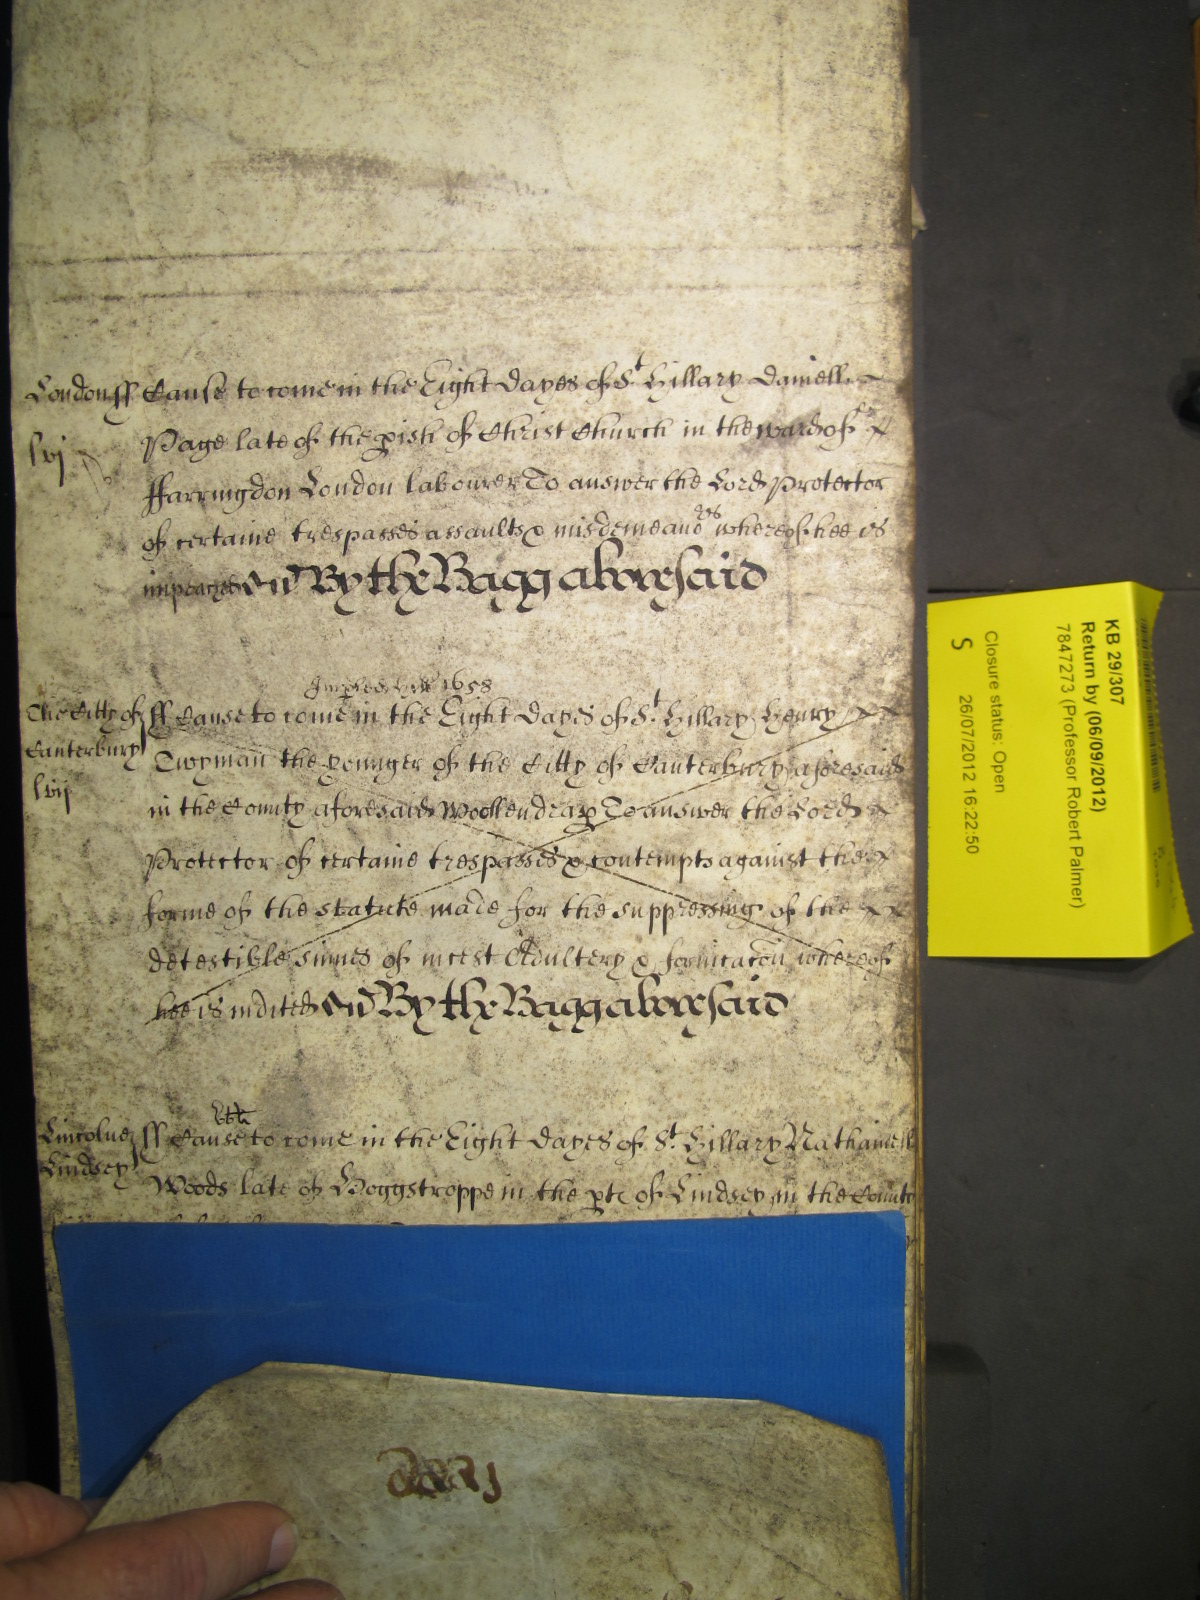 London ff Cause to come in the Eight dayes of St Hillary Daniell
lvj Page late of the pish of Christ Church in the ward of
ffarringdon London labourer To answer the Lord Protector
of certaine trespasses assaults & misdemeanors whereof hee is
impeached By the Bagg aboresaid
1658
The Citty of Canterbury ff Cause to come in the Eight dayes of St Hillary Henry
lvij Twyman the younger of the Citty of Canterbury aforesaid
in the County aforesaid Woollendrap To answer the Lord
Protector of certaine trespasses & contempts against the
forme of the statute made for the suppressing of the
detestible sinnes of incest Adultery & fornicacon whereof
hee is indited By the Bagg aboresaid
Lincolne Lindsey ff Cause to come in the Eight dayes of St Hillary Nathaniell
Woods late of Hoggstroppe in the pte of Lindsey in the County
KB 29/307
Return by (06/09/2012)
7847273 (Professor Robert Palmer)
Closure status: Open
S 26/07/2012 16:22:50